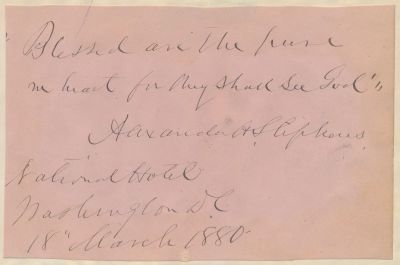 "Blessed are the pure
in heart for they shall see God"
Alexander H. Stephens
National Hotel
Washington D.C
18" March 1880